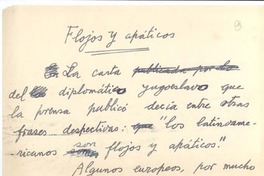 Flojos y apáticos
La carta publicada por
del diplomático yugoeslavo que
la prensa publicó decía entre otras
frases despectivas: que "los latinoame-
ricanos son flojos y apáticos."
Algunos europeos, por mucho